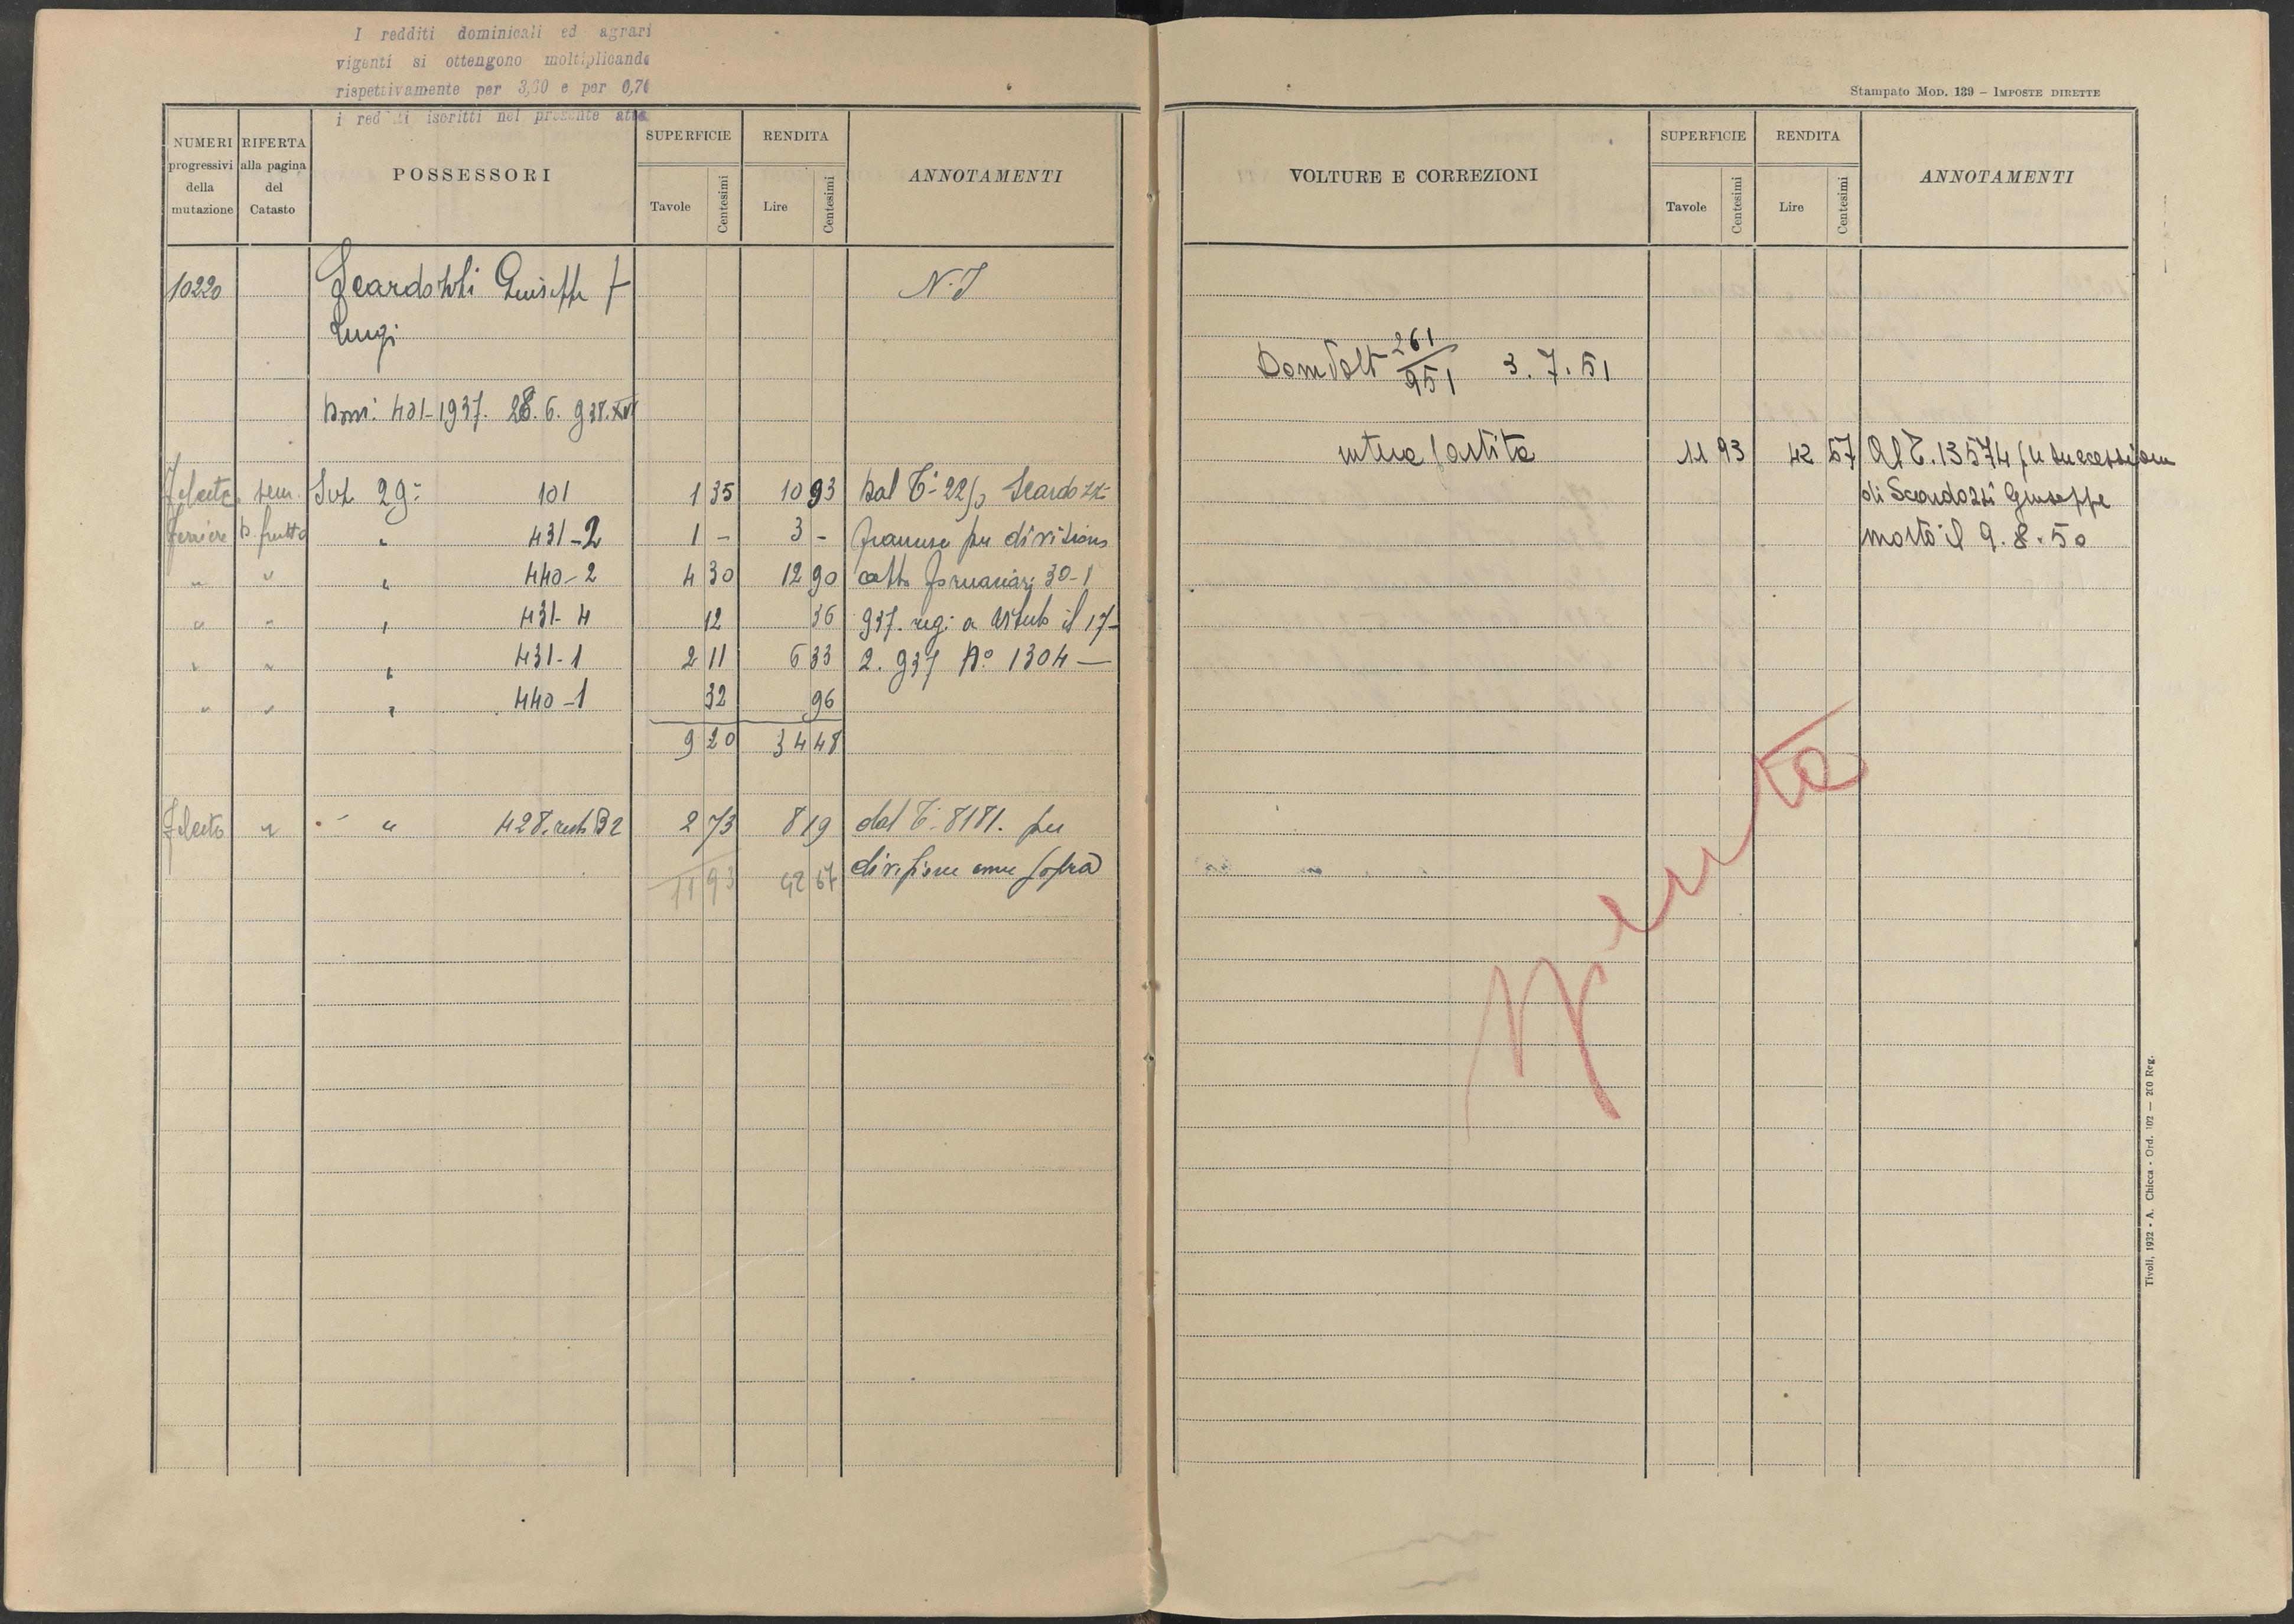 I redditi dominicali ed agrari
vigenti si ottengono moltiplicando
rispettivamente per 3,60 e per 0,70
i redditi iscritti nel presente atto
NUMERI progressivi della mutazione
RIFERTA alla pagina del Catasto
POSSESSORI
SUPERFICIE
Tavole Centesimi
RENDITA
Lire Centesimi
ANNOTAMENTI
10220 Scardozzi Giuseppe f N.I
Luigi
401-1937. 28.6.938.XVI
sem. Sez 29: 101 1 35 10 93 Dal T. 22/3 Scardozzi
b. frutto " 431-2 1 - 3 - per divisione
" " " 440-2 4 30 12 90 atto 30-1
" " " 431-4 12 36 937. reg: a il 17-
" " " 431-1 2 11 6 33 2. 937 N° 1304 —
" " " 440-1 32 96
9 20 34 48
" " " 428. 2 73 8 19 dal T. 8181. per
11 93 42 67 divisione come sopra
Stampato Mod. 139 – Imposte dirette
VOLTURE E CORREZIONI
SUPERFICIE
Tavole Centesimi
RENDITA
Lire Centesimi
ANNOTAMENTI
Dom Volt 261/951 3.7.51
intera partita 11 93 42 67 Al T. 13574 per successione
di Scardozzi Giuseppe
morto il 9.8.50
Spenta
Tivoli, 1932 - A. Chicca - Ord. 102 — 200 Reg.